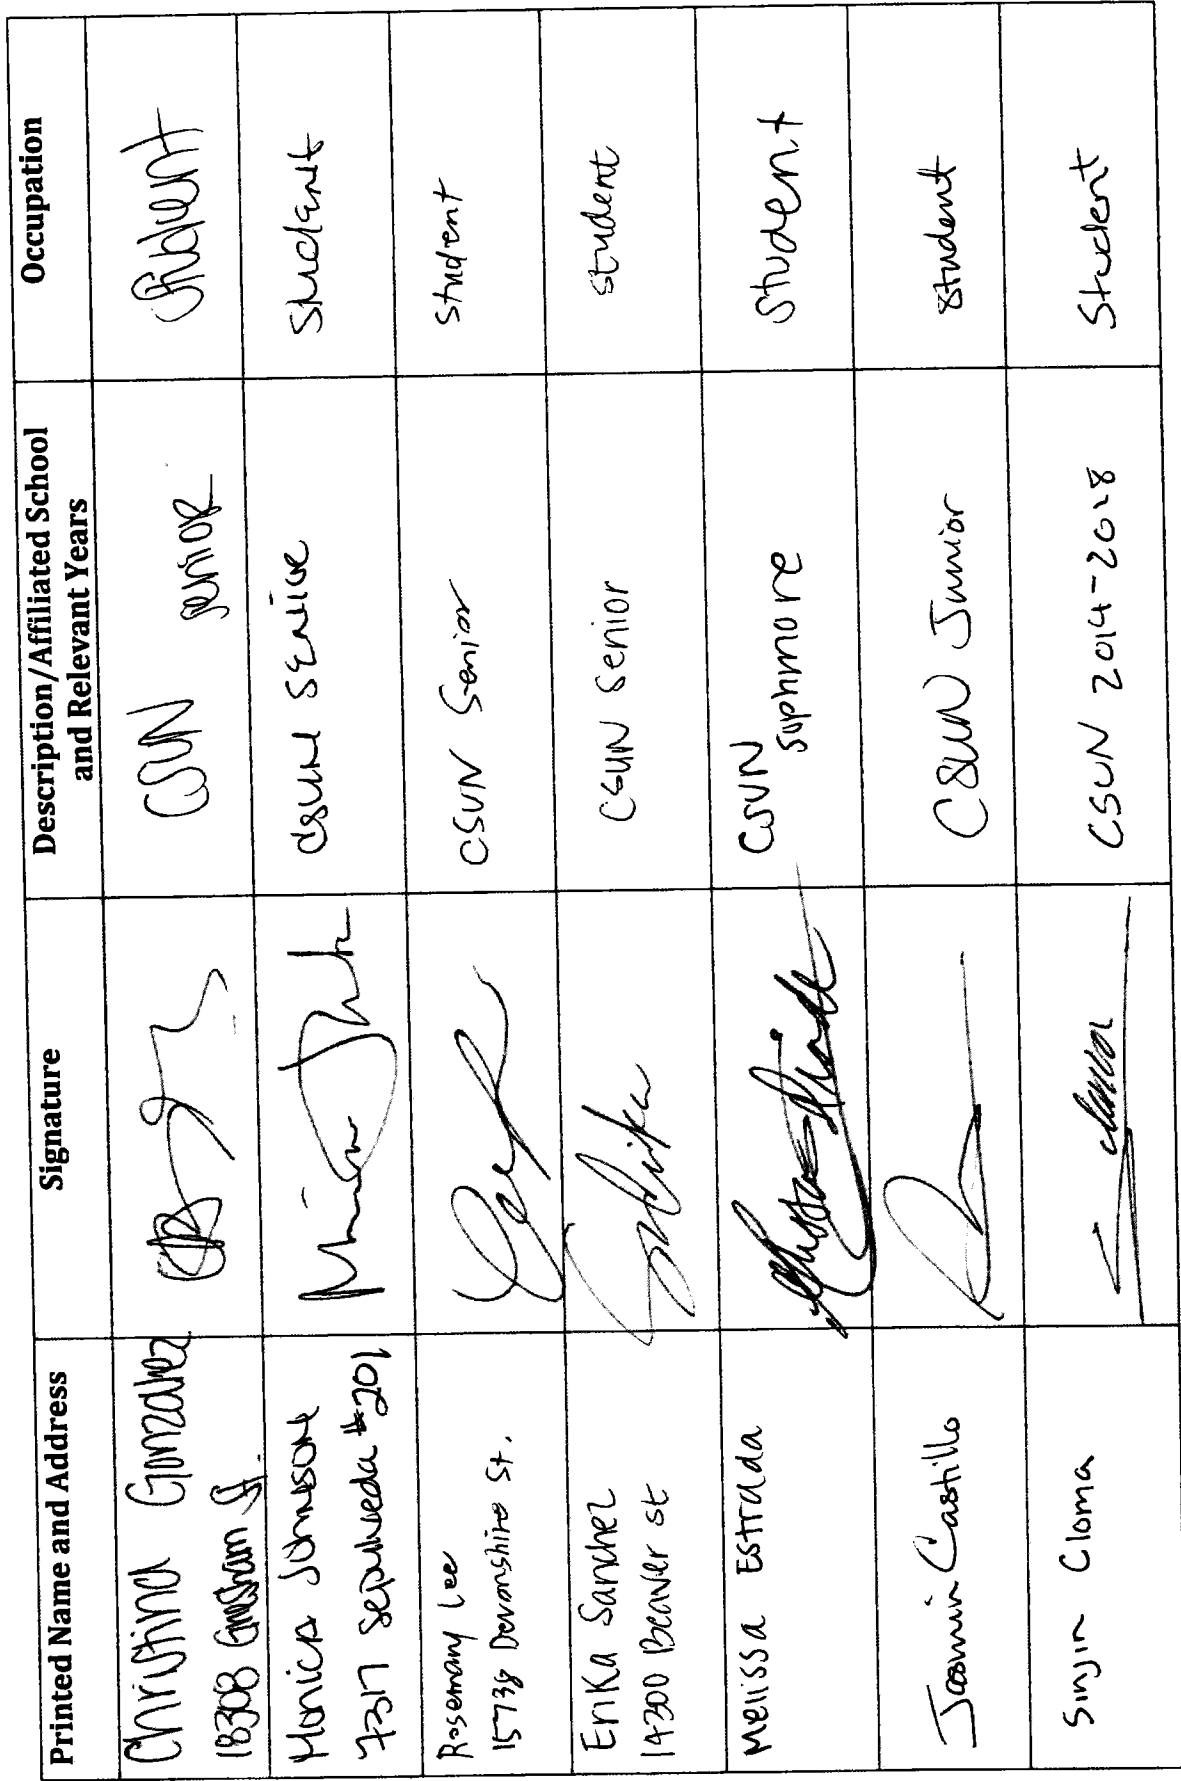 Printed Name and Address
Signature
Description/Affiliated School
and Relevant Years
Occupation
Christina Gonzalez
18308 Gresham St.
CSUN senior
Student
Monica Johnson
7317 Sepulveda #201
CSUN SENIOR
Student
Rosemary Lee
15738 Devonshire St.
CSUN Senior
Student
Erika Sanchez
14300 Beaver St
CSUN Senior
student
Melissa Estrada
CSUN
Suphmore
Student
Jasmin Castillo
CSUN Junior
student
Sinjin Cloma
CSUN 2014-2018
Student